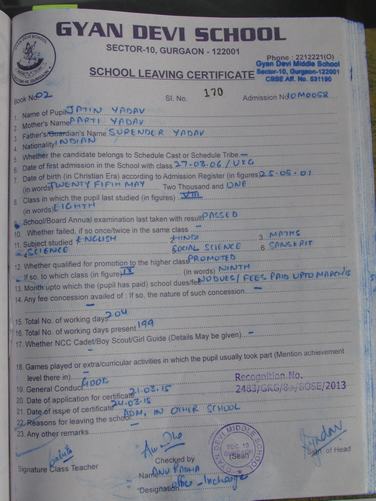 GYAN DEVI SCHOOL
SECTOR-10, GURGAON - 122001
Phone : 2212221(O)
Gyan Devi Middle School
Sector-10, Gurgaon-122001
CBSE Aff. No. 531190
SCHOOL LEAVING CERTIFICATE
Book No. 02 Sl. No. 170 Admission No. 10M0058
1. Name of Pupil JATIN YADAV
2. Mother's Name AARTI YADAV
3. Father's/Guardian's Name SURENDER YADAV
4. Nationality INDIAN
5. Whether the candidate belongs to Schedule Cast or Schedule Tribe —
6. Date of first admission in the School with class 27-03-06 / UKG
7. Date of birth (in Christian Era) according to Admission Register (in figures) 25-05-01
(in words) TWENTY FIFTH MAY Two Thousand and ONE
8. Class in which the pupil last studied (in figures) VIII
(in words) EIGHTH
9. School/Board Annual examination last taken with result PASSED
10. Whether failed, if so once/twice in the same class —
11. Subject studied 1. ENGLISH 2. HINDI 3. MATHS
4. SCIENCE 5. SOCIAL SCIENCE 6. SANSKRIT
12. Whether qualified for promotion to the higher class PROMOTED
If so, to which class (in figure) IX (in words) NINTH
13. Month upto which the (pupil has paid) school dues/fee NO DUES / FEES PAID UPTO MARCH/15
14. Any fee concession availed of : If so, the nature of such concession —
15. Total No. of working days 204
16. Total No. of working days present 199
17. Whether NCC Cadet/Boy Scout/Girl Guide (Details May be given) —
18. Games played or extra/curricular activities in which the pupil usually took part (Mention achievement
level there in) —
19. General Conduct GOOD
Recognition No.
20. Date of application for certificate 21.03.15
21. Date of issue of certificate 24.03.15
22. Reasons for leaving the school ADM. IN OTHER SCHOOL
23. Any other remarks —
Signature Class Teacher
Checked by
(Seal)
Sign. of Head
Name
Designation office - Incharge